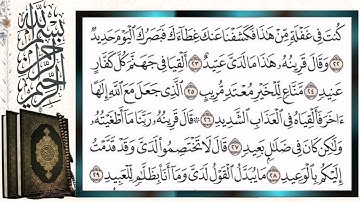 بسم الله الرحمن الرحيم
كُنتَ فِي غَفْلَةٍ مِّنْ هَٰذَا فَكَشَفْنَا عَنكَ غِطَاءَكَ فَبَصَرُكَ الْيَوْمَ حَدِيدٌ
٢٢ وَقَالَ قَرِينُهُ هَٰذَا مَا لَدَيَّ عَتِيدٌ ٢٣ أَلْقِيَا فِي جَهَنَّمَ كُلَّ كَفَّارٍ
عَنِيدٍ ٢٤ مَّنَّاعٍ لِّلْخَيْرِ مُعْتَدٍ مُّرِيبٍ ٢٥ الَّذِي جَعَلَ مَعَ اللَّهِ إِلَٰهًا
آخَرَ فَأَلْقِيَاهُ فِي الْعَذَابِ الشَّدِيدِ ٢٦ ۞ قَالَ قَرِينُهُ رَبَّنَا مَا أَطْغَيْتُهُ
وَلَٰكِن كَانَ فِي ضَلَالٍ بَعِيدٍ ٢٧ قَالَ لَا تَخْتَصِمُوا لَدَيَّ وَقَدْ قَدَّمْتُ
إِلَيْكُم بِالْوَعِيدِ ٢٨ مَا يُبَدَّلُ الْقَوْلُ لَدَيَّ وَمَا أَنَا بِظَلَّامٍ لِّلْعَبِيدِ ٢٩